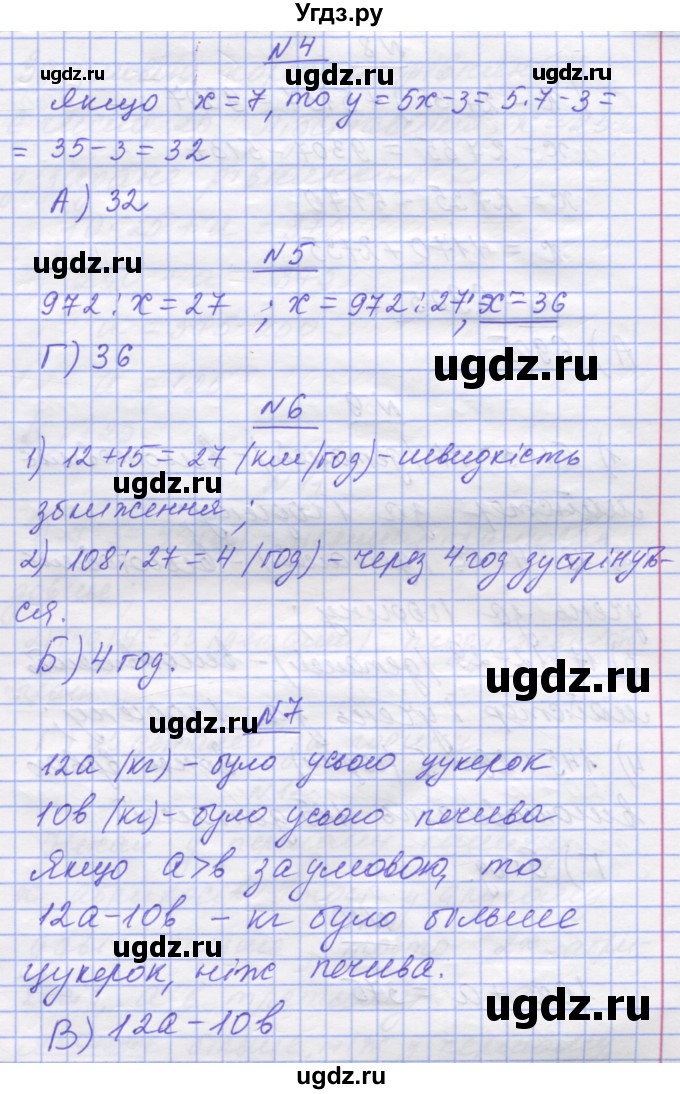 Угдз.ру
N4
ugdz.ru
ugdz.ru
Якщо x = 7, то y = 5x - 3 = 5 · 7 - 3 =
= 35 - 3 = 32
А) 32
N5
ugdz.ru
972 : x = 27 ; x = 972 : 27 ; x = 36
Г) 36
ugdz.ru
N6
1) 12 + 15 = 27 (км/год) - швидкість
ugdz.ru
зближення;
2) 108 : 27 = 4 (год) - через 4 год зустрінув-
ся.
Б) 4 год.
ugdz.ru
ugdz.ru
N7
12a (кг) - було усього цукерок
10в (кг) - було усього печива
Якщо a > в за умовою, то
12a - 10в - кг було більше
ugdz.ru
цукерок, ніж печива.
ugdz.ru
В) 12a - 10в
ugdz.ru